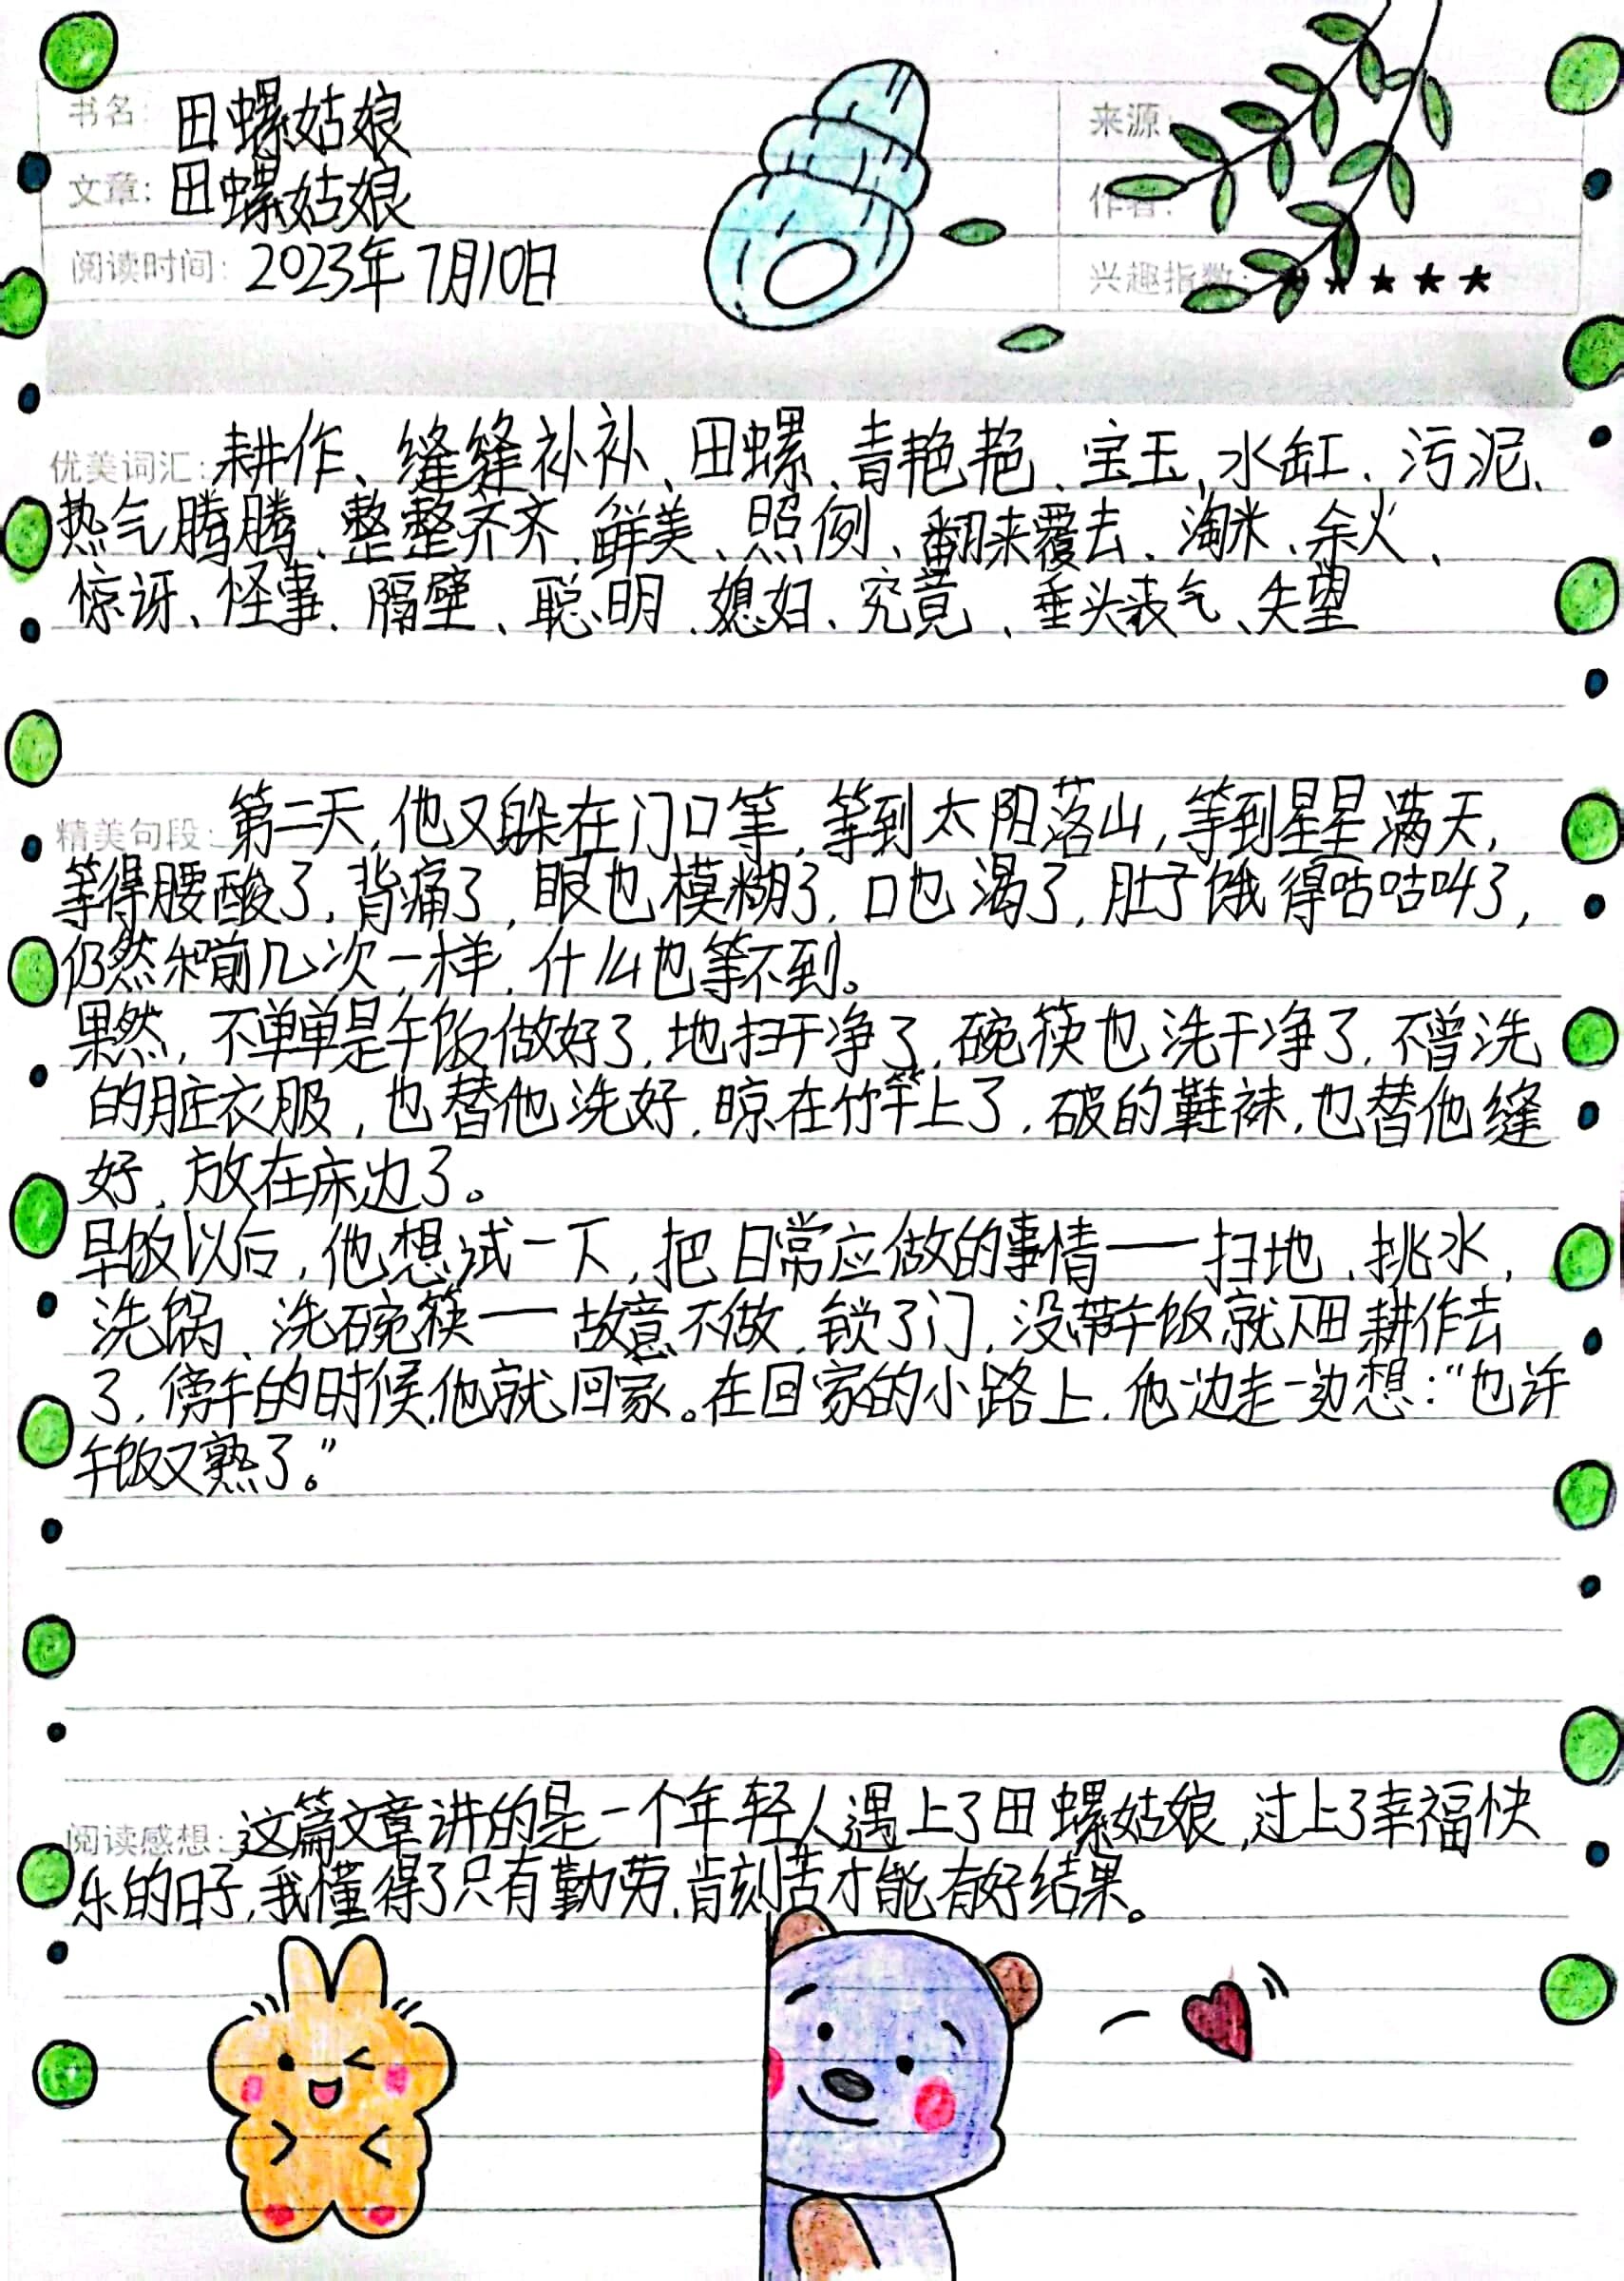 书名: 田螺姑娘
来源:
文章: 田螺姑娘
作者:
阅读时间: 2023年7月10日
兴趣指数: ★★★★★
优美词汇: 耕作、缝缝补补、田螺、青艳艳、宝玉、水缸、污泥、
热气腾腾、整整齐齐、鲜美、照例、翻来覆去、淘米、余火、
惊讶、怪事、隔壁、聪明、媳妇、究竟、垂头丧气、失望
精美句段: 第二天,他又躲在门口等,等到太阳落山,等到星星满天,
等得腰酸了,背痛了,眼也模糊了,口也渴了,肚子饿得咕咕叫了,
仍然和前几次一样,什么也等不到。
果然,不单单是午饭做好了,地扫干净了,碗筷也洗干净了,不曾洗
的脏衣服,也替他洗好,晾在竹竿上了,破的鞋袜,也替他缝
好,放在床边了。
早饭以后,他想试一下,把日常应做的事情——扫地、挑水,
洗锅、洗碗筷——故意不做,锁了门,没带午饭就下田耕作去
了,傍午的时候,他就回家。在回家的小路上,他一边走一边想:“也许
午饭又熟了。”
阅读感想: 这篇文章讲的是一个年轻人遇上了田螺姑娘,过上了幸福快
乐的日子,我懂得了只有勤劳,肯刻苦才能有好结果。